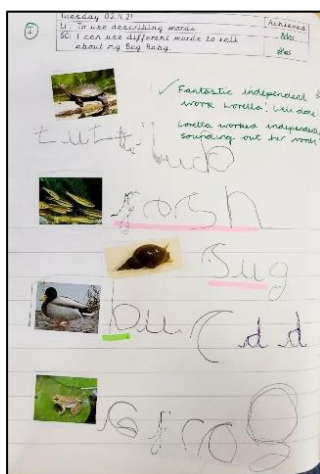 Tuesday 02.3.21
LI: To use describing words.
SC: I can use different words to talk about my Bog Baby.
Achieved
Yes
Yes
I
✓ Fantastic independent
work Lorella! Well done
Lorella worked independently
sounding out her words
fosh
sug
buc d d
G frog